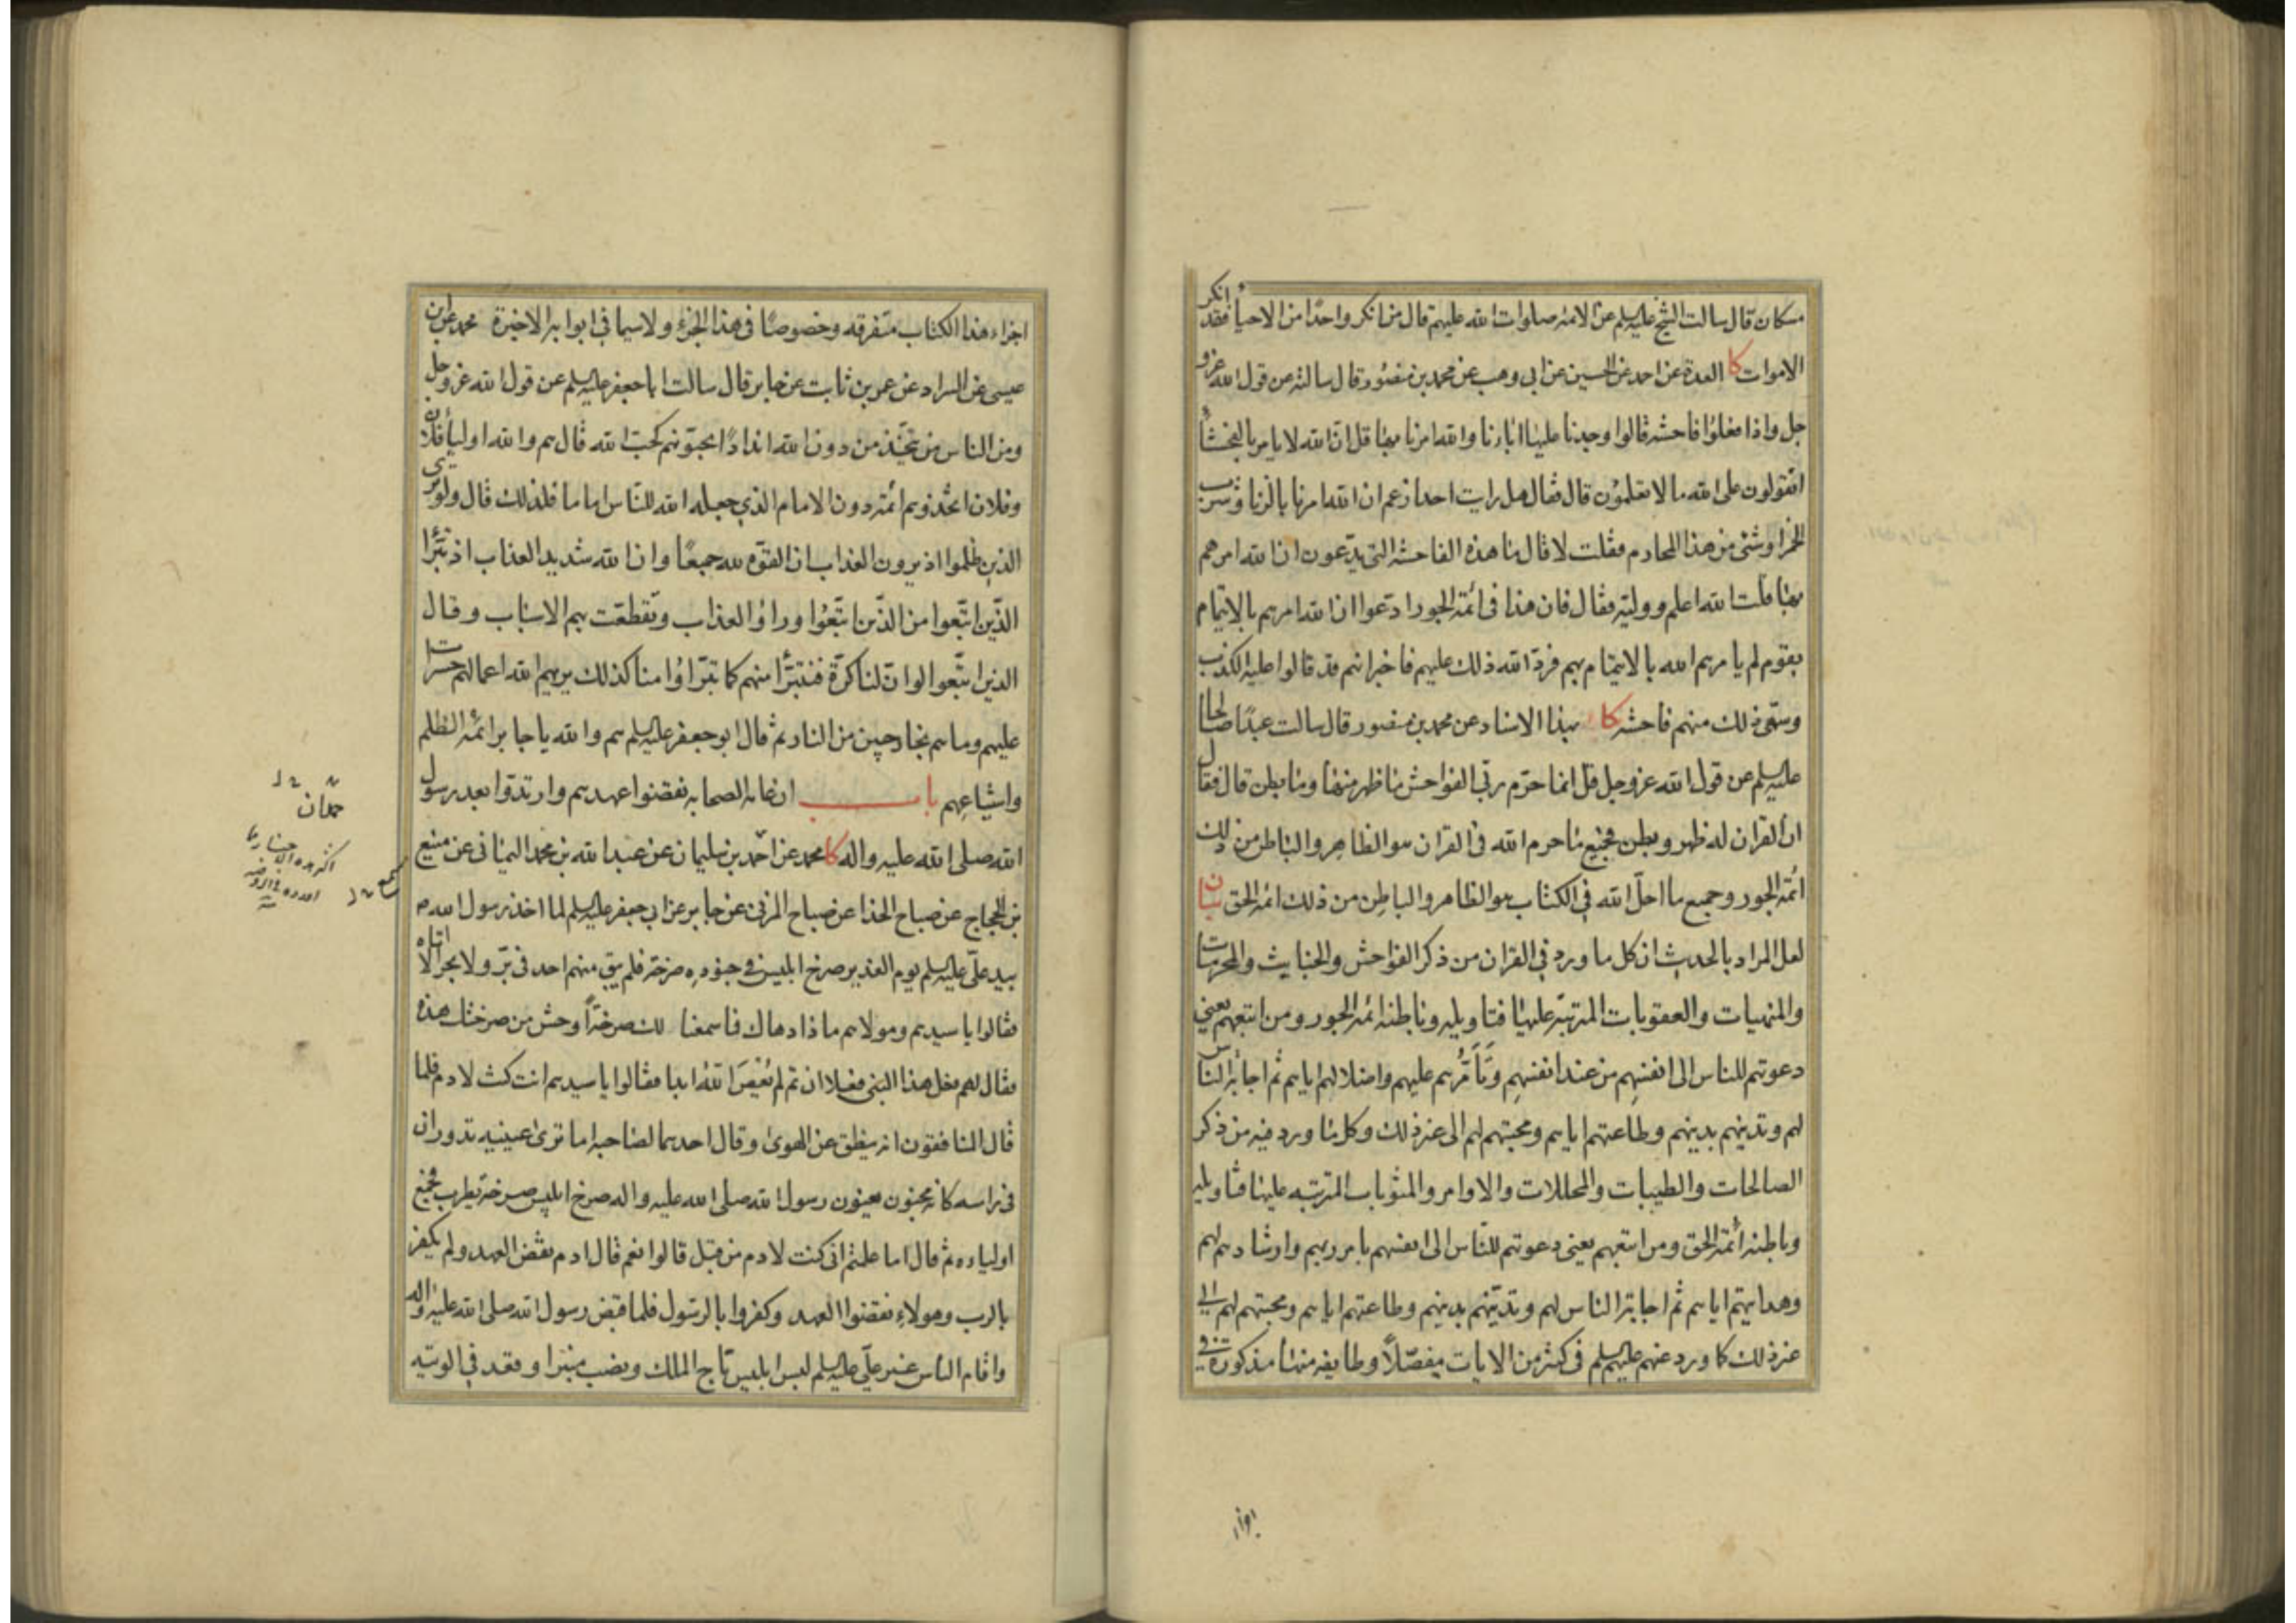 مسكان قال سالت الشيخ عليه السلم عن الائمة صلوات الله عليهم قال من انكر واحدًا من الاحياء فقد انكر
الاموات كا العدة عن احمد عن الحسين عن ابي وهب عن محمد بن منصور قال سالته عن قول الله عز و
جل واذا فعلوا فاحشة قالوا وجدنا عليها اباءنا والله امرنا بها قل ان الله لا يامر بالفحشاء
اتقولون على الله ما لا تعلمون قال فقال هل رايت احدا زعم ان الله امرنا بالزنا وشرب
الخمر او شئ من هذا المحارم فقلت لا قال ما هذه الفاحشة التي يدّعون ان الله امرهم
بها قلت الله اعلم ووليه فقال فان هذا في ائمة الجور ادعوا ان الله امرهم بالايتمام
بقوم لم يامرهم الله بالايتمام بهم فردّ الله ذلك عليهم فاخبر انهم قد قالوا عليه الكذب
وسمّى ذلك منهم فاحشة كا بهذا الاسناد عن محمد بن منصور قال سالت عبدًا صالحا
عليه السلم عن قول الله عز وجل قل انما حرّم ربّي الفواحش ما ظهر منها وما بطن قال فقال
ان القران له ظهر وبطن فجميع ما حرم الله في القران هو الظاهر والباطن من ذلك
ائمة الجور وجميع ما احلّ الله في الكتاب هو الظاهر والباطن من ذلك ائمة الحق بيان
لعل المراد بالحديث ان كل ما ورد في القران من ذكر الفواحش والخبايث والمحرمات
والمنهيات والعقوبات المترتبة عليها فتاويله وباطنه ائمة الجور ومن اتبعهم يعني
دعوتهم للناس الى انفسهم من عند انفسهم وتَأَمُّرهم عليهم واضلالهم اياهم ثم اجابة الناس
لهم وتدينهم بدينهم وطاعتهم اياهم ومحبتهم لهم الى غير ذلك وكل ما ورد فيه من ذكر
الصالحات والطيبات والمحللات والاوامر والمثوبات المترتبة عليها فتاويله
وباطنه ائمة الحق ومن اتبعهم يعني دعوتهم للناس الى انفسهم بامر ربهم وارشادهم لهم
وهدايتهم اياهم ثم اجابة الناس لهم وتديّنهم بدينهم وطاعتهم اياهم ومحبتهم لهم الى
غير ذلك كما ورد عنهم عليهم السلم في كثير من الايات مفصّلاً وطايفة منها مذكورة في
اجزاء هذا الكتاب متفرقة وخصوصًا في هذا الجزء ولا سيما في ابوابه الاخيرة محمد عن ابن
عيسى عن السراد عن عمر بن ثابت عن جابر قال سالت ابا جعفر عليه السلم عن قول الله عز وجل
ومن الناس من يتخذ من دون الله اندادًا يحبّونهم كحبّ الله قال هم والله اولياء فلان
وفلان اتخذوهم ائمة دون الامام الذي جعله الله للناس اماما فلذلك قال ولو يرى
الذين ظلموا اذ يرون العذاب ان القوّة لله جميعًا وان الله شديد العذاب اذ تبرّأ
الذين اتّبعوا من الذين اتّبعوا وراؤا العذاب وتقطّعت بهم الاسباب وقال
الذين اتّبعوا لو انّ لنا كرّة فنتبرّأ منهم كما تبرّاؤا منا كذلك يريهم الله اعمالهم حسرات
عليهم وما هم بخارجين من النار ثم قال ابو جعفر عليه السلم هم والله يا جابر ائمة الظلم
واشياعهم باب ان عامة الصحابة نقضوا عهدهم وارتدّوا بعد رسول
الله صلى الله عليه واله كا محمد عن احمد بن سليمان عن عبد الله بن محمد اليماني عن منيع
بن الحجاج عن صباح الحذا عن صباح المزني عن جابر عن ابي جعفر عليه السلم لما اخذ رسول الله ص
بيد عليّ عليه السلم يوم الغدير صرخ ابليس في جنوده صرخة فلم يبق منهم احد في برّ ولا بحر الا اتاه
فقالوا يا سيدهم ومولاهم ماذا دهاك فما سمعنا لك صرخةً اوحش من صرختك هذه
فقال لهم فعل هذا النبي فعلا ان تم لم يُعْصَ الله ابدا فقالوا يا سيدهم انت كنت لادم فلما
قال المنافقون انه ينطق عن الهوى وقال احدهما لصاحبه اما ترى عينيه تدوران
في راسه كانه مجنون يعنون رسول الله صلى الله عليه واله صرخ ابليس صرخة يطرب فجمع
اولياءه ثم قال اما علمتم اني كنت لادم من قبل قالوا نعم قال ادم نقض العهد ولم يكفر
بالرب وهولاء نقضوا العهد وكفروا بالرسول فلما قبض رسول الله صلى الله عليه واله
واقام الناس غير عليّ عليه السلم لبس ابليس تاج الملك ونصب منبرا وقعد في الوتبه